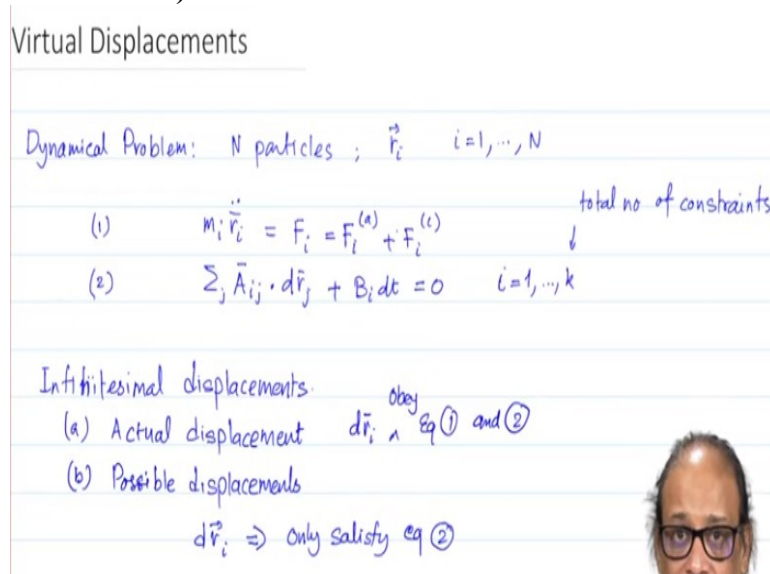 Virtual Displacements
Dynamical Problem: N particles ; r⃗ᵢ i=1,...,N
total no of constraints
(1) mᵢ r̈ᵢ = Fᵢ = Fᵢ⁽ᵃ⁾ + Fᵢ⁽ᶜ⁾
↓
(2) Σⱼ Āᵢⱼ · dr̄ⱼ + Bᵢ dt = 0 i=1,...,k
Infinitesimal displacements.
(a) Actual displacement dr̄ᵢ ^ obey Eq ① and ②
(b) Possible displacements
dr⃗ᵢ ⇒ only satisfy eq ②